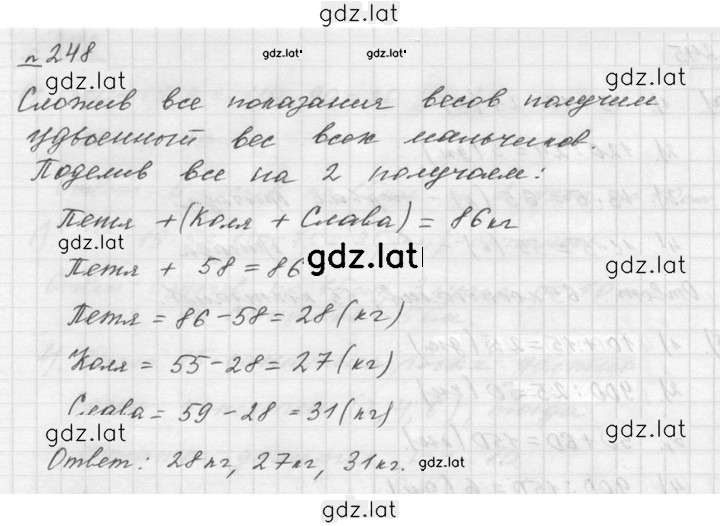 gdz.lat
№ 248
gdz.lat gdz.lat
gdz.lat gdz.lat
Сложив все показания весов получим
удвоенный вес всех мальчиков.
Поделив все на 2 получаем:
Петя + (Коля + Слава) = 86 кг
gdz.lat
Петя + 58 = 86
gdz.lat gdz.lat
Петя = 86 - 58 = 28 (кг)
Коля = 55 - 28 = 27 (кг)
Слава = 59 - 28 = 31 (кг)
gdz.lat gdz.lat
Ответ: 28 кг, 27 кг, 31 кг.
gdz.lat
gdz.lat